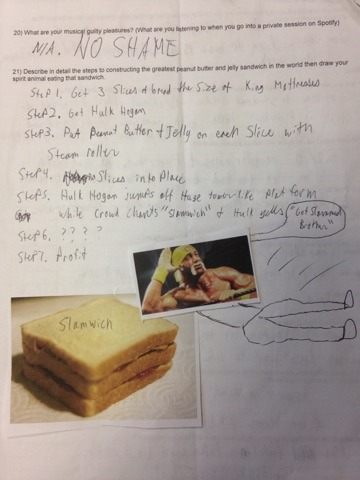 20) What are your musical guilty pleasures? (What are you listening to when you go into a private session on Spotify)
N/A. NO SHAME
21) Describe in detail the steps to constructing the greatest peanut butter and jelly sandwich in the world then draw your
spirit animal eating that sandwich.
Step 1. Get 3 Slices of bread the size of King Mattresses
Step 2. Get Hulk Hogan
Step 3. Put Peanut Butter & Jelly on each slice with
Steam roller
Step 4. Slices into Place
Step 5. Hulk Hogan jumps off Huge tower-like platform
while crowd chants "slamwich" & Hulk yells "Get Slammed
Brother"
Step 6. ? ? ?
Step 7. Profit
Slamwich